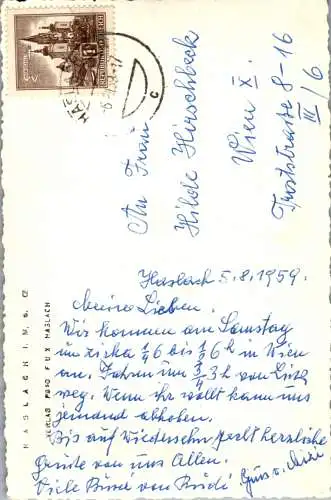 An Frau
Hilde Hirschbeck
Wien X.
Troststraße 8-16
III/6
Haslach 5.8.1959.
Meine Lieben.
Wir kommen am Samstag
um zirka 1/4 6 bis 1/2 6h in Wien
an. Fahren um 3/4 3h von Linz
weg. Wenn ihr wollt kann uns
jemand abholen.
Bis auf Wiedersehn herzliche
Grüße von uns Allen.
Viele Bussi von Rudi
HASLACH I. M., O. Ö.
VERLAG FOTO FUX HASLACH
REPUBLIK ÖSTERREICH